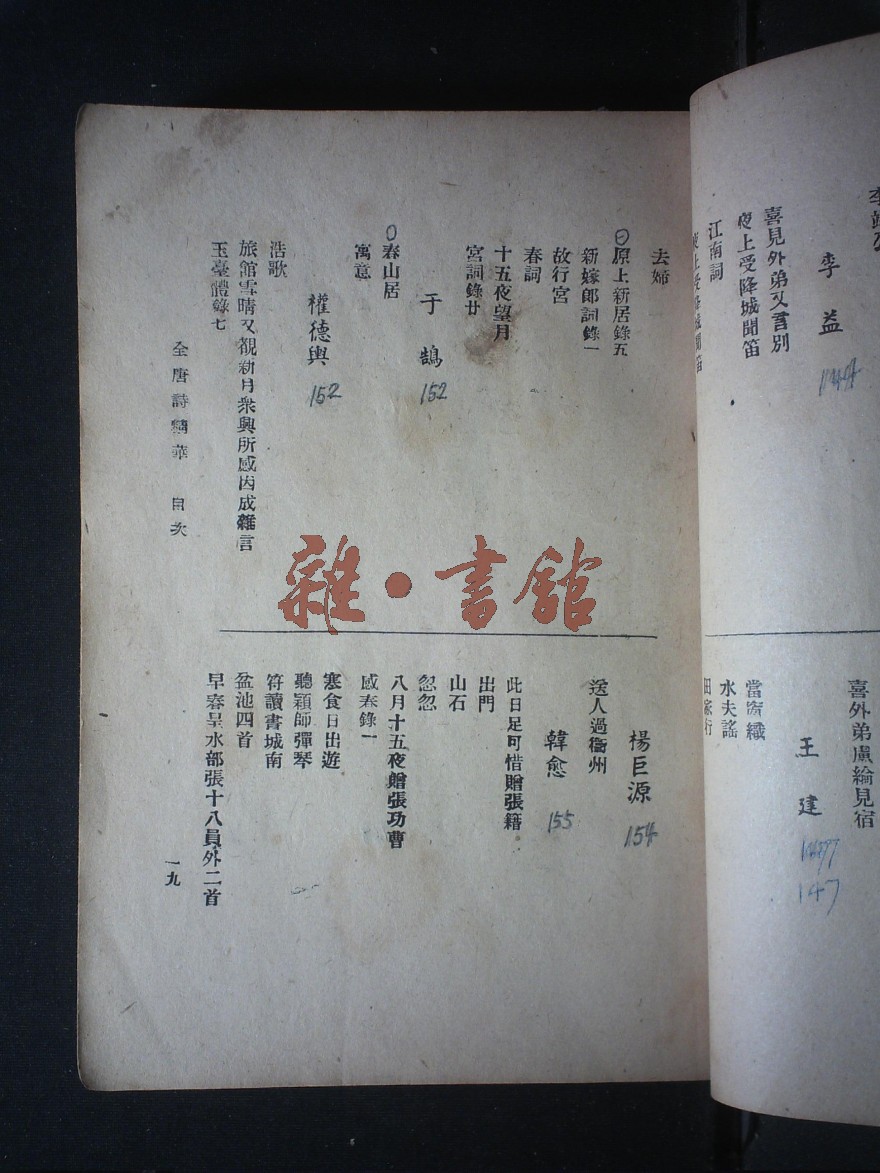 李益
喜見外弟又言別
夜上受降城聞笛
江南詞
喜外弟盧綸見宿
王建
147
當窗織
水夫謠
田家行
去婦
原上新居錄五
新嫁郎詞錄一
故行宮
春詞
十五夜望月
宮詞錄廿
于鵠
152
春山居
寓意
權德輿
152
浩歌
旅館雪晴又覩新月衆興所感因成雜言
玉臺體錄七
楊巨源
154
送人過衞州
韓愈
155
此日足可惜贈張籍
出門
山石
忽忽
八月十五夜贈張功曹
感春錄一
寒食日出遊
聽穎師彈琴
符讀書城南
盆池四首
早春呈水部張十八員外二首
全唐詩精華 目次
一九
雜·書館